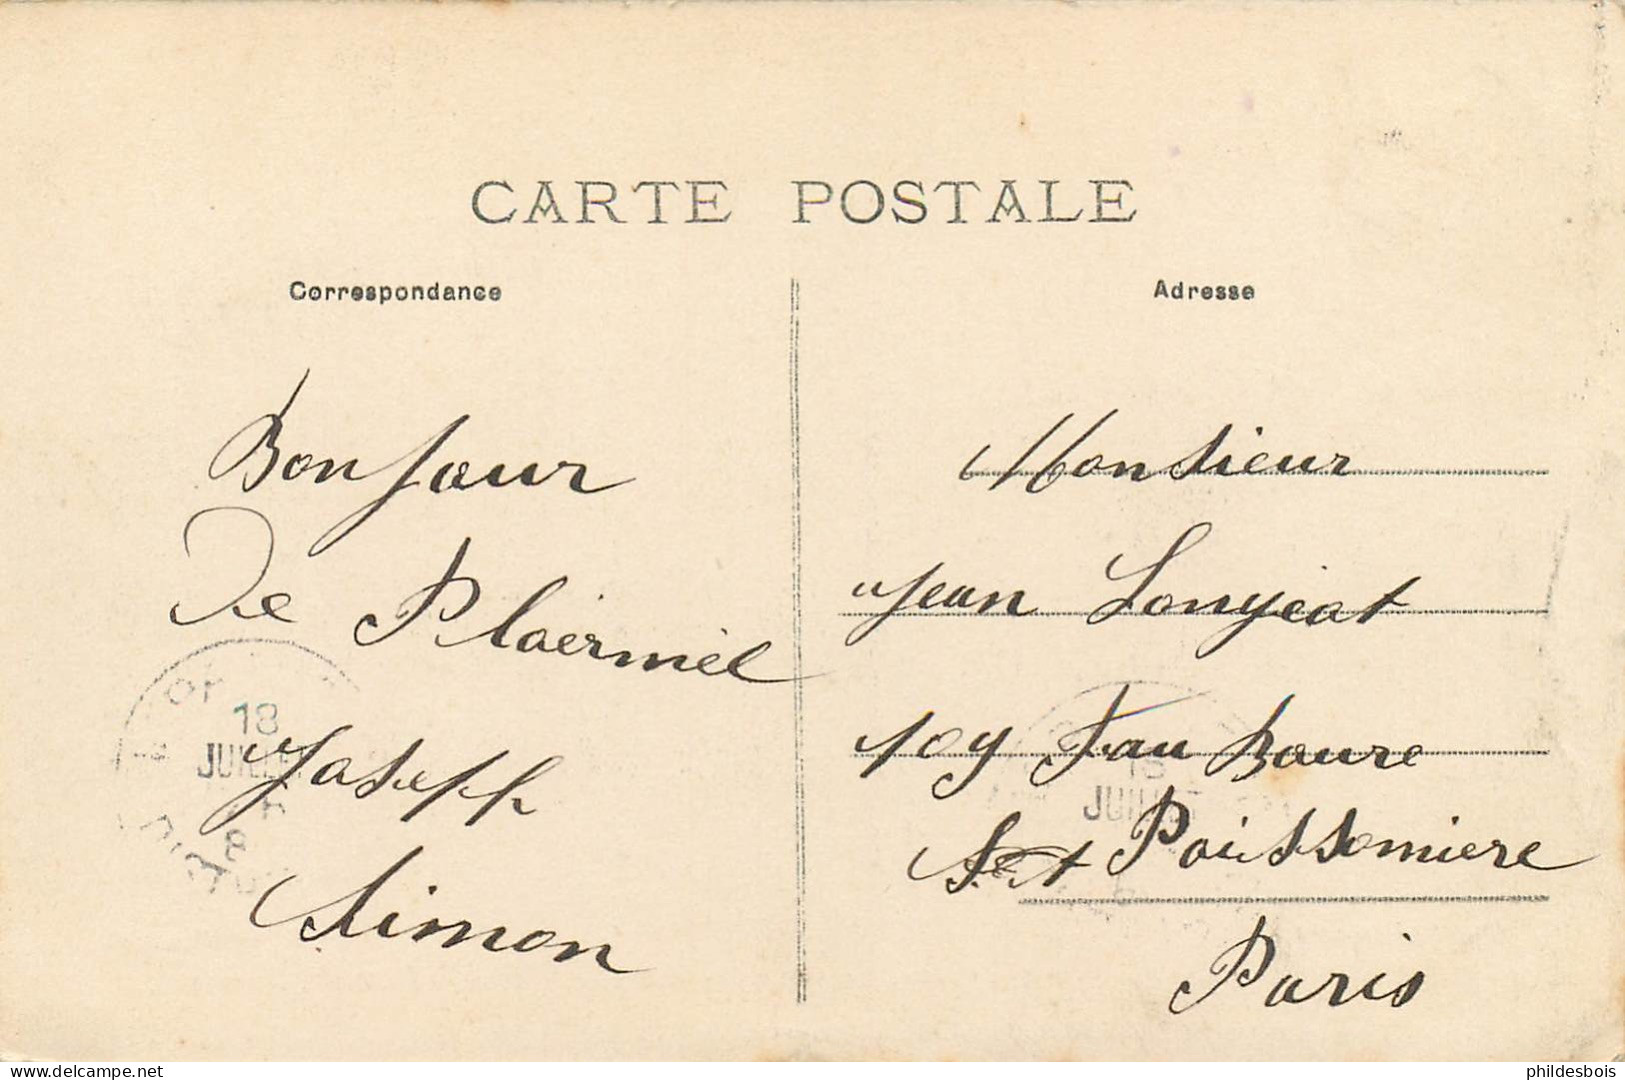 CARTE POSTALE
Correspondance
Bonjour
De Plaermel
Joseph
Simon
18
JUILLE
Adresse
Monsieur
Jean Longeat
109 Fau Boure
St Poissomiere
Paris
JUILLET
delcampe.net
phildesbois